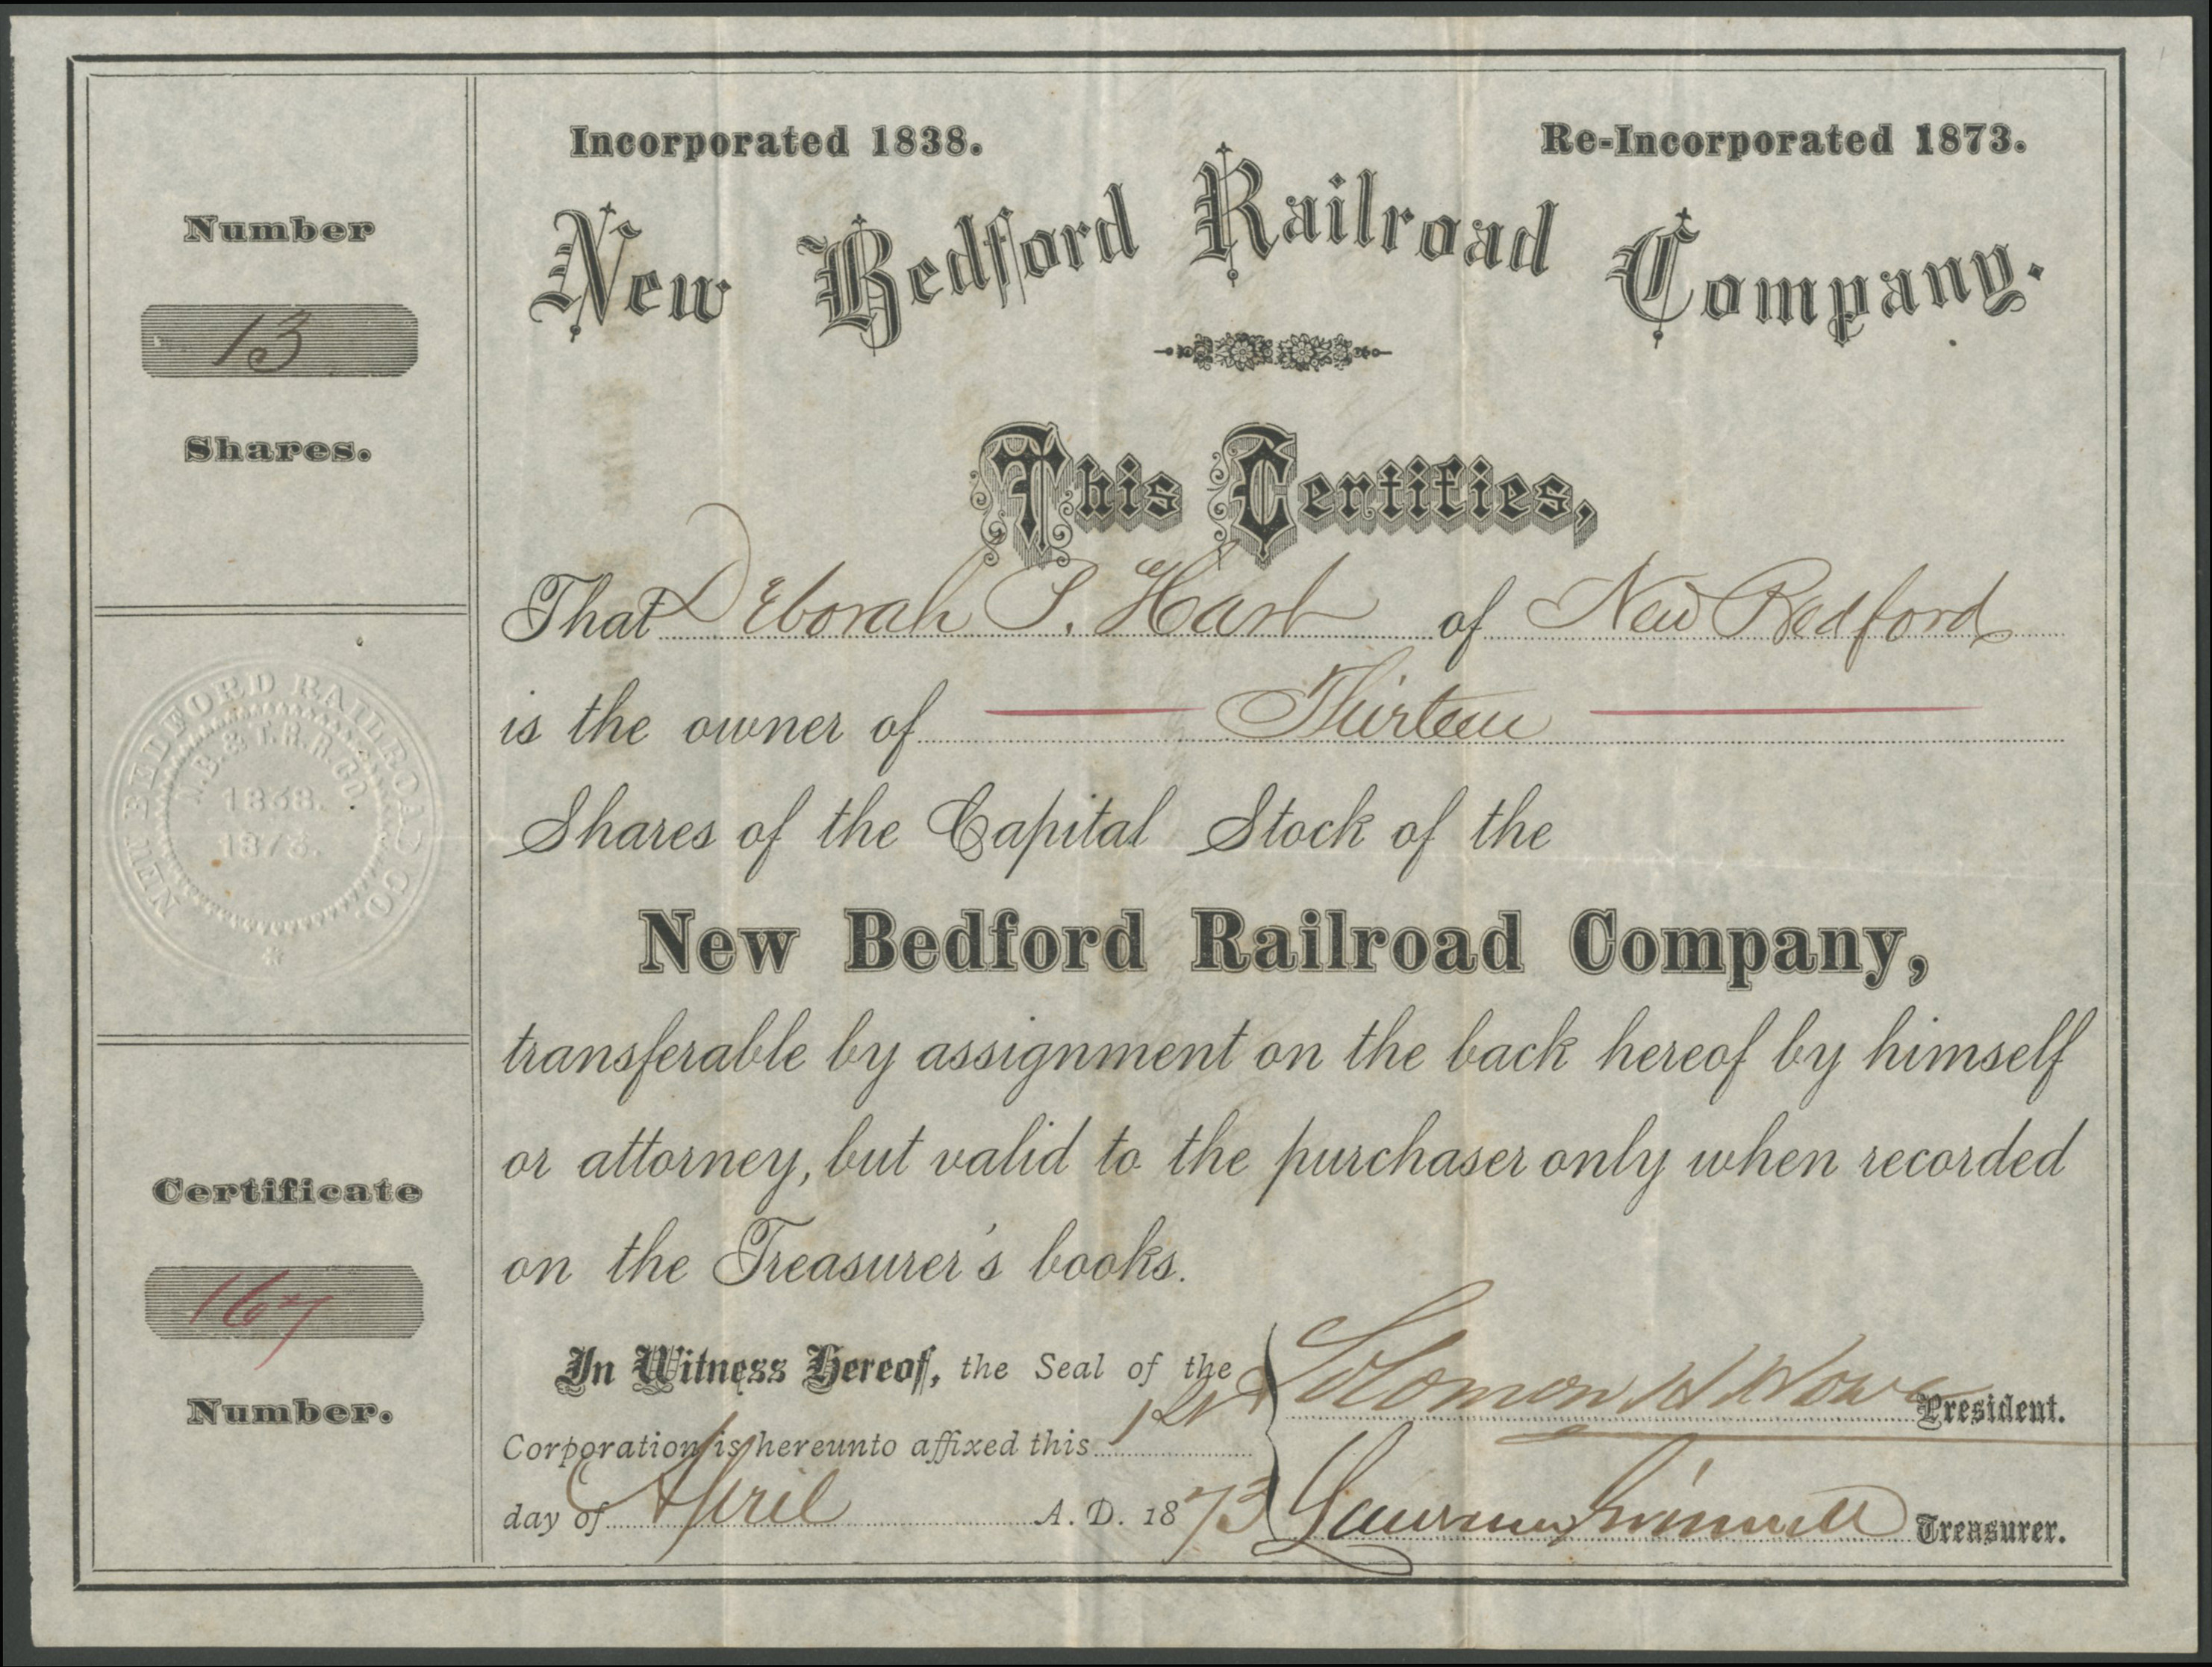 Incorporated 1838.
Re-Incorporated 1873.
New Bedford Railroad Company.
Number
13
Shares.
This Certifies,
That Deborah S. Hart of New Bedford
is the owner of Thirteen
Shares of the Capital Stock of the
New Bedford Railroad Company,
transferable by assignment on the back hereof by himself
or attorney, but valid to the purchaser only when recorded
on the Treasurer's books.
NEW BEDFORD RAILROAD CO.
N.B. & T.R.R. CO.
1838.
1873.
Certificate
167
Number.
In Witness Hereof, the Seal of the
Corporation is hereunto affixed this 1st
day of April A. D. 1873
Solomon President.
Lawrence Grinnell Treasurer.